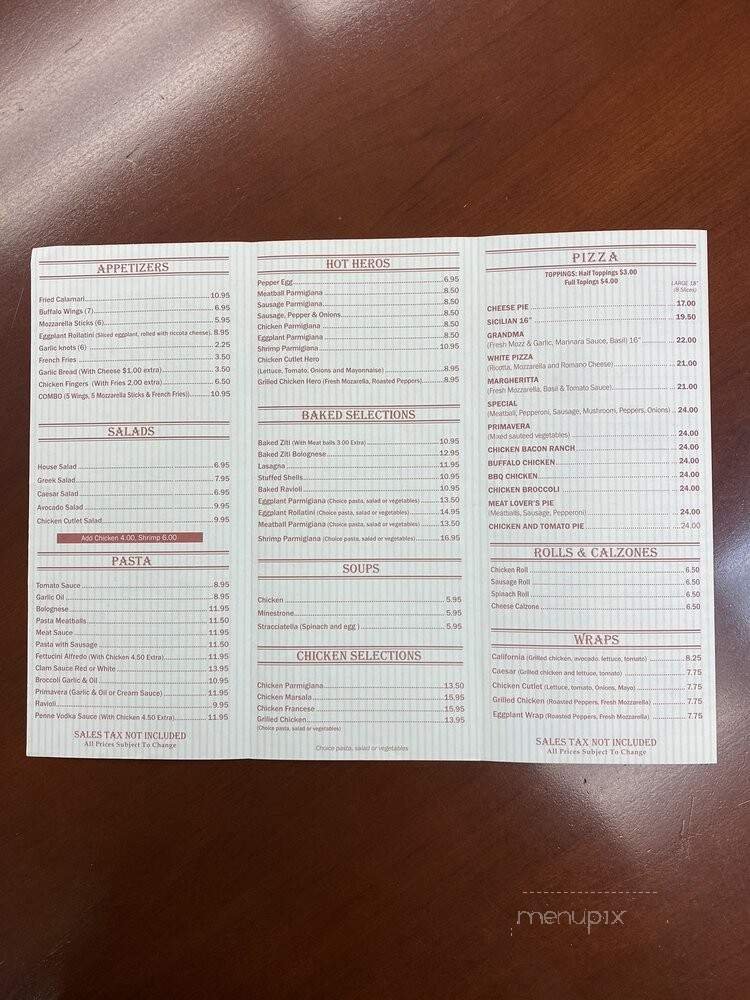 APPETIZERS
Fried Calamari 10.95
Buffalo Wings (7) 6.95
Mozzarella Sticks (6) 5.95
Eggplant Rollatini (Sliced eggplant, rolled with riccota cheese) 8.95
Garlic knots (6) 2.25
French Fries 3.50
Garlic Bread (With Cheese $1.00 extra) 3.50
Chicken Fingers (With Fries 2.00 extra) 6.50
COMBO (5 Wings, 5 Mozzarella Sticks & French Fries)) 10.95
SALADS
House Salad 6.95
Greek Salad 7.95
Caesar Salad 6.95
Avocado Salad 9.95
Chicken Cutlet Salad 9.95
Add Chicken 4.00, Shrimp 6.00
PASTA
Tomato Sauce 8.95
Garlic Oil 8.95
Bolognese 11.95
Pasta Meatballs 11.50
Meat Sauce 11.95
Pasta with Sausage 11.50
Fettucini Alfredo (With Chicken 4.50 Extra) 11.95
Clam Sauce Red or White 13.95
Broccoli Garlic & Oil 10.95
Primavera (Garlic & Oil or Cream Sauce) 11.95
Ravioli 9.95
Penne Vodka Sauce (With Chicken 4.50 Extra) 11.95
SALES TAX NOT INCLUDED
All Prices Subject To Change
HOT HEROS
Pepper Egg 6.95
Meatball Parmigiana 8.50
Sausage Parmigiana 8.50
Sausage, Pepper & Onions 8.50
Chicken Parmigiana 8.50
Eggplant Parmigiana 8.50
Shrimp Parmigiana 10.95
Chicken Cutlet Hero
(Lettuce, Tomato, Onions and Mayonnaise) 8.95
Grilled Chicken Hero (Fresh Mozarella, Roasted Peppers) 8.95
BAKED SELECTIONS
Baked Ziti (With Meat balls 3.00 Extra) 10.95
Baked Ziti Bolognese 12.95
Lasagna 11.95
Stuffed Shells 10.95
Baked Ravioli 10.95
Eggplant Parmigiana (Choice pasta, salad or vegetables) 13.50
Eggplant Rollatini (Choice pasta, salad or vegetables) 14.95
Meatball Parmigiana (Choice pasta, salad or vegetables) 13.50
Shrimp Parmigiana (Choice pasta, salad or vegetables) 16.95
SOUPS
Chicken 5.95
Minestrone 5.95
Stracciatella (Spinach and egg ) 5.95
CHICKEN SELECTIONS
Chicken Parmigiana 13.50
Chicken Marsala 15.95
Chicken Francese 15.95
Grilled Chicken 13.95
(Choice pasta, salad or vegetables)
Choice pasta, salad or vegetables
PIZZA
TOPPINGS: Half Toppings $3.00
Full Topings $4.00
LARGE 18"
(8 Slices)
CHEESE PIE 17.00
SICILIAN 16" 19.50
GRANDMA
(Fresh Mozz & Garlic, Marinara Sauce, Basil) 16" 22.00
WHITE PIZZA
(Ricotta, Mozzarella and Romano Cheese) 21.00
MARGHERITTA
(Fresh Mozzarella, Basil & Tomato Sauce) 21.00
SPECIAL
(Meatball, Pepperoni, Sausage, Mushroom, Peppers, Onions) 24.00
PRIMAVERA
(Mixed sauteed vegetables) 24.00
CHICKEN BACON RANCH 24.00
BUFFALO CHICKEN 24.00
BBQ CHICKEN 24.00
CHICKEN BROCCOLI 24.00
MEAT LOVER'S PIE
(Meatballs, Sausage, Pepperoni) 24.00
CHICKEN AND TOMATO PIE 24.00
ROLLS & CALZONES
Chicken Roll 6.50
Sausage Roll 6.50
Spinach Roll 6.50
Cheese Calzone 6.50
WRAPS
California (Grilled chicken, avocado, lettuce, tomato) 8.25
Caesar (Grilled chicken and lettuce, tomato) 7.75
Chicken Cutlet (Lettuce, tomato, Onions, Mayo) 7.75
Grilled Chicken (Roasted Peppers, Fresh Mozzarella) 7.75
Eggplant Wrap (Roasted Peppers, Fresh Mozzarella) 7.75
SALES TAX NOT INCLUDED
All Prices Subject To Change
menupix